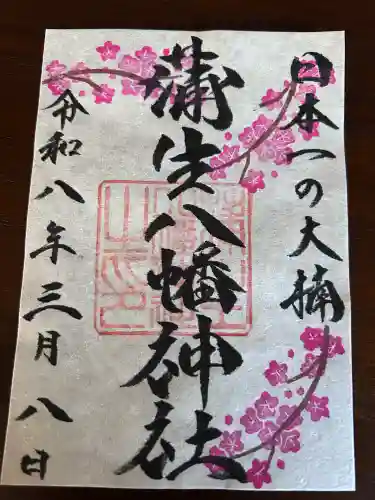 日本一の大楠
蒲生八幡神社
令和八年三月八日